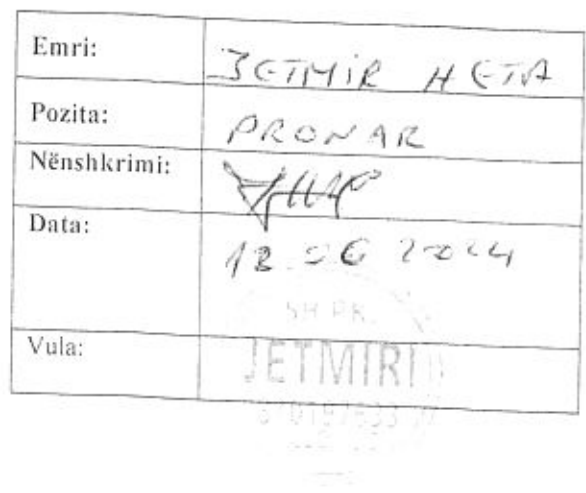 Emri: JETMIR HETA
Pozita: PRONAR
Nënshkrimi:
Data: 13 06 2024
SH.PR.
Vula: JETMIRI